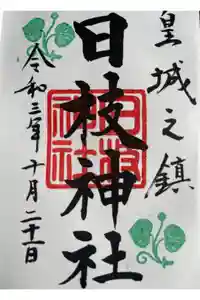 皇城之鎮
日枝神社
令和三年十月二十一日